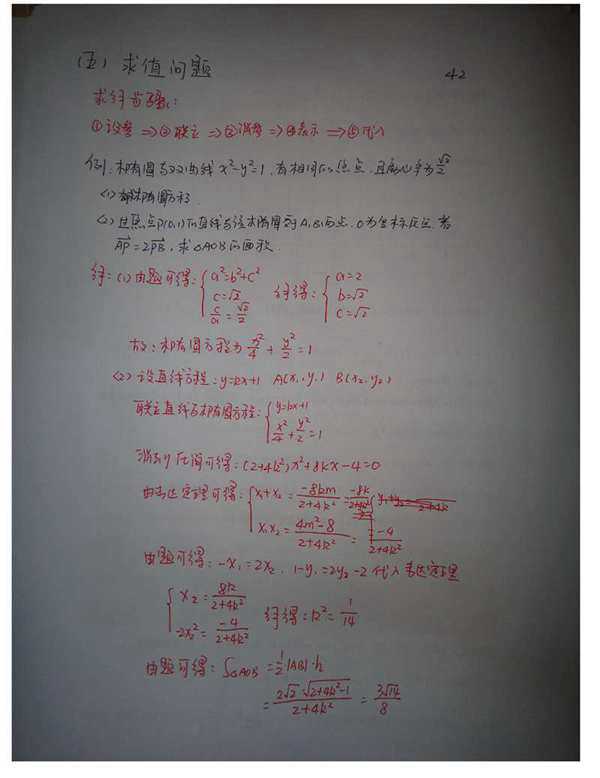 (五) 求值问题
42
求解步骤:
①设参 ⇒ ② 联立 ⇒ ③ 消参 ⇒ ④ 表示 ⇒ ⑤ 代入
例1. 椭圆与双曲线 x²-y²=1. 有相同的焦点. 且离心率为 √2/2
(1) 求椭圆方程.
(2) 过点P(0,1)的直线与该椭圆交于A.B两点. O为坐标原点. 若
AP=2PB, 求△AOB的面积.
解: (1) 由题可得: { a²=b²+c² c=√2 c/a=√2/2 解得: { a=2 b=√2 c=√2
故: 椭圆方程为 x²/4 + y²/2 = 1
(2) 设直线方程: y=kx+1 A(x₁.y₁) B(x₂.y₂)
联立直线与椭圆方程: { y=kx+1 x²/4+y²/2=1
消y 化简可得: (2+4k²)x²+8kx-4=0
由韦达定理可得: { x₁+x₂ = -8km/2+4k² = -8k/2+4k²
x₁x₂ = 4m²-8/2+4k² = -4/2+4k²
由题可得: -x₁=2x₂. 1-y₁=2y₂-2 代入韦达定理
{ x₂ = 8k/2+4k² -2x₂² = -4/2+4k² 解得: k² = 1/14
由题可得: S△AOB = 1/2|AB|·h
= 2√2·√2+4k²-1/2+4k² = 3√14/8